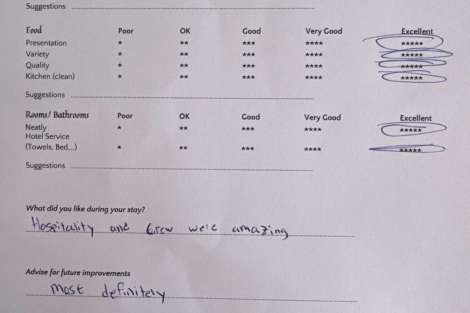 Suggestions
Food Poor OK Good Very Good Excellent
Presentation * ** *** **** *****
Variety * ** *** **** *****
Quality * ** *** **** *****
Kitchen (clean) * ** *** **** *****
Suggestions
Rooms/ Bathrooms Poor OK Good Very Good Excellent
Neatly * ** *** **** *****
Hotel Service
(Towels, Bed...) * ** *** **** *****
Suggestions
What did you like during your stay?
Hospitality and Crew were amazing
Advise for future improvements
most definitely